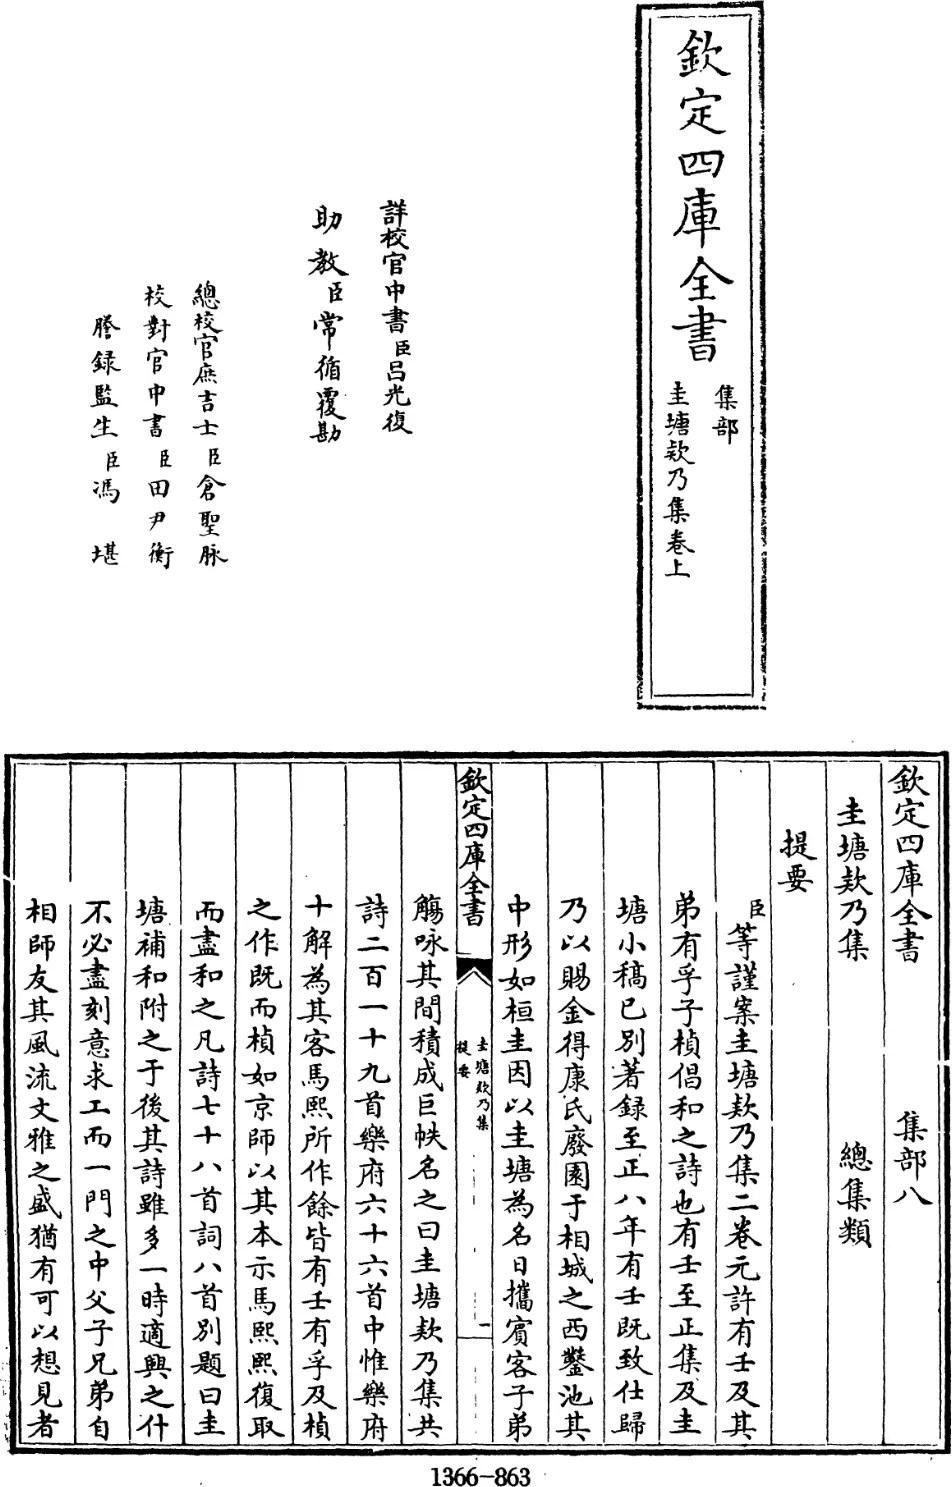 欽定四庫全書
集部
圭塘欵乃集卷上
詳校官中書臣呂光復
助教臣常循覆勘
總校官庶吉士臣倉聖脉
校對官中書臣田尹衡
謄錄監生臣馮堪
欽定四庫全書 集部八
圭塘欵乃集 總集類
提要
臣等謹案圭塘欵乃集二卷元許有壬及其
弟有孚子楨倡和之詩也有壬至正集及圭
塘小稿已別著錄至正八年有壬既致仕歸
乃以賜金得康氏廢園于相城之西鑿池其
中形如桓圭因以圭塘為名日攜賓客子弟
欽定四庫全書
圭塘欵乃集
提要
一
觴咏其間積成巨帙名之曰圭塘欵乃集共
詩二百一十九首樂府六十六首中惟樂府
十解為其客馬熙所作餘皆有壬有孚及楨
之作既而楨如京師以其本示馬熙熙復取
而盡和之凡詩七十八首詞八首別題曰圭
塘補和附之于後其詩雖多一時適興之什
不必盡刻意求工而一門之中父子兄弟自
相師友其風流文雅之盛猶有可以想見者
1366-863